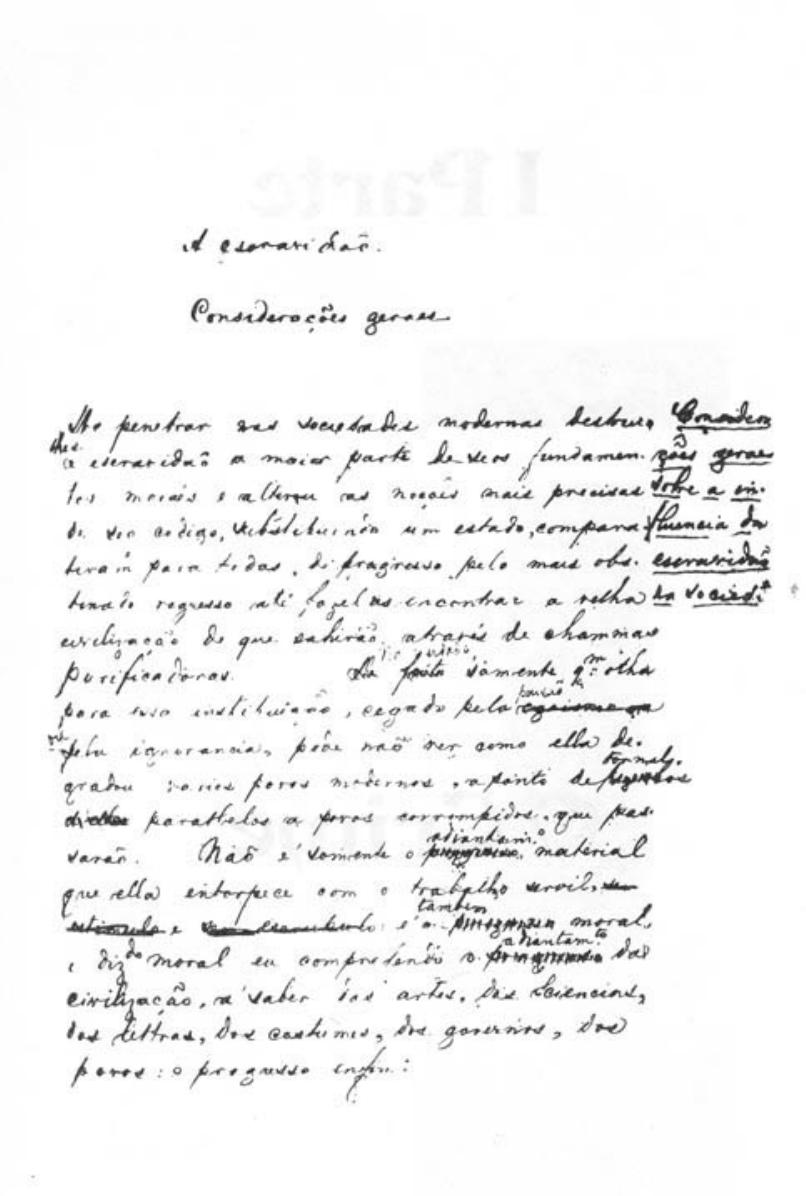 A escravidão.
Considerações geraes
Ao penetrar nas sociedades modernas destruiu
-lhes
a escravidão a maior parte de seos fundamen-
tos moraes e alterou as noções mais precisas
de seo codigo, substituindo um estado, compara-
tivam para todas, de progresso pelo mais obs-
tinado regresso até fazel as encontrar a velha
civilização de que sahirão através de chammas
purificadoras. somente q.m olha
para essa instituição, cegado pela
paixão
ou
pela ignorancia, póde não ver como ella de-
gradou varios povos modernos, a ponto de
tornal-os
parallelos a povos corrompidos, que pas-
sarão. Não é somente o
adiantam.to
material
que ella entorpece com o trabalho servil,
estimulo e
é o
tambem
moral,
e diz.do moral eu comprehendo o
adiantam.to
da
civilização, a saber das artes, das sciencias,
das lettras, dos costumes, dos governos, dos
povos: o progresso enfim:
Considera-
ções geraes
sobre a in-
fluencia da
escravidão
na socied.e
I Parte